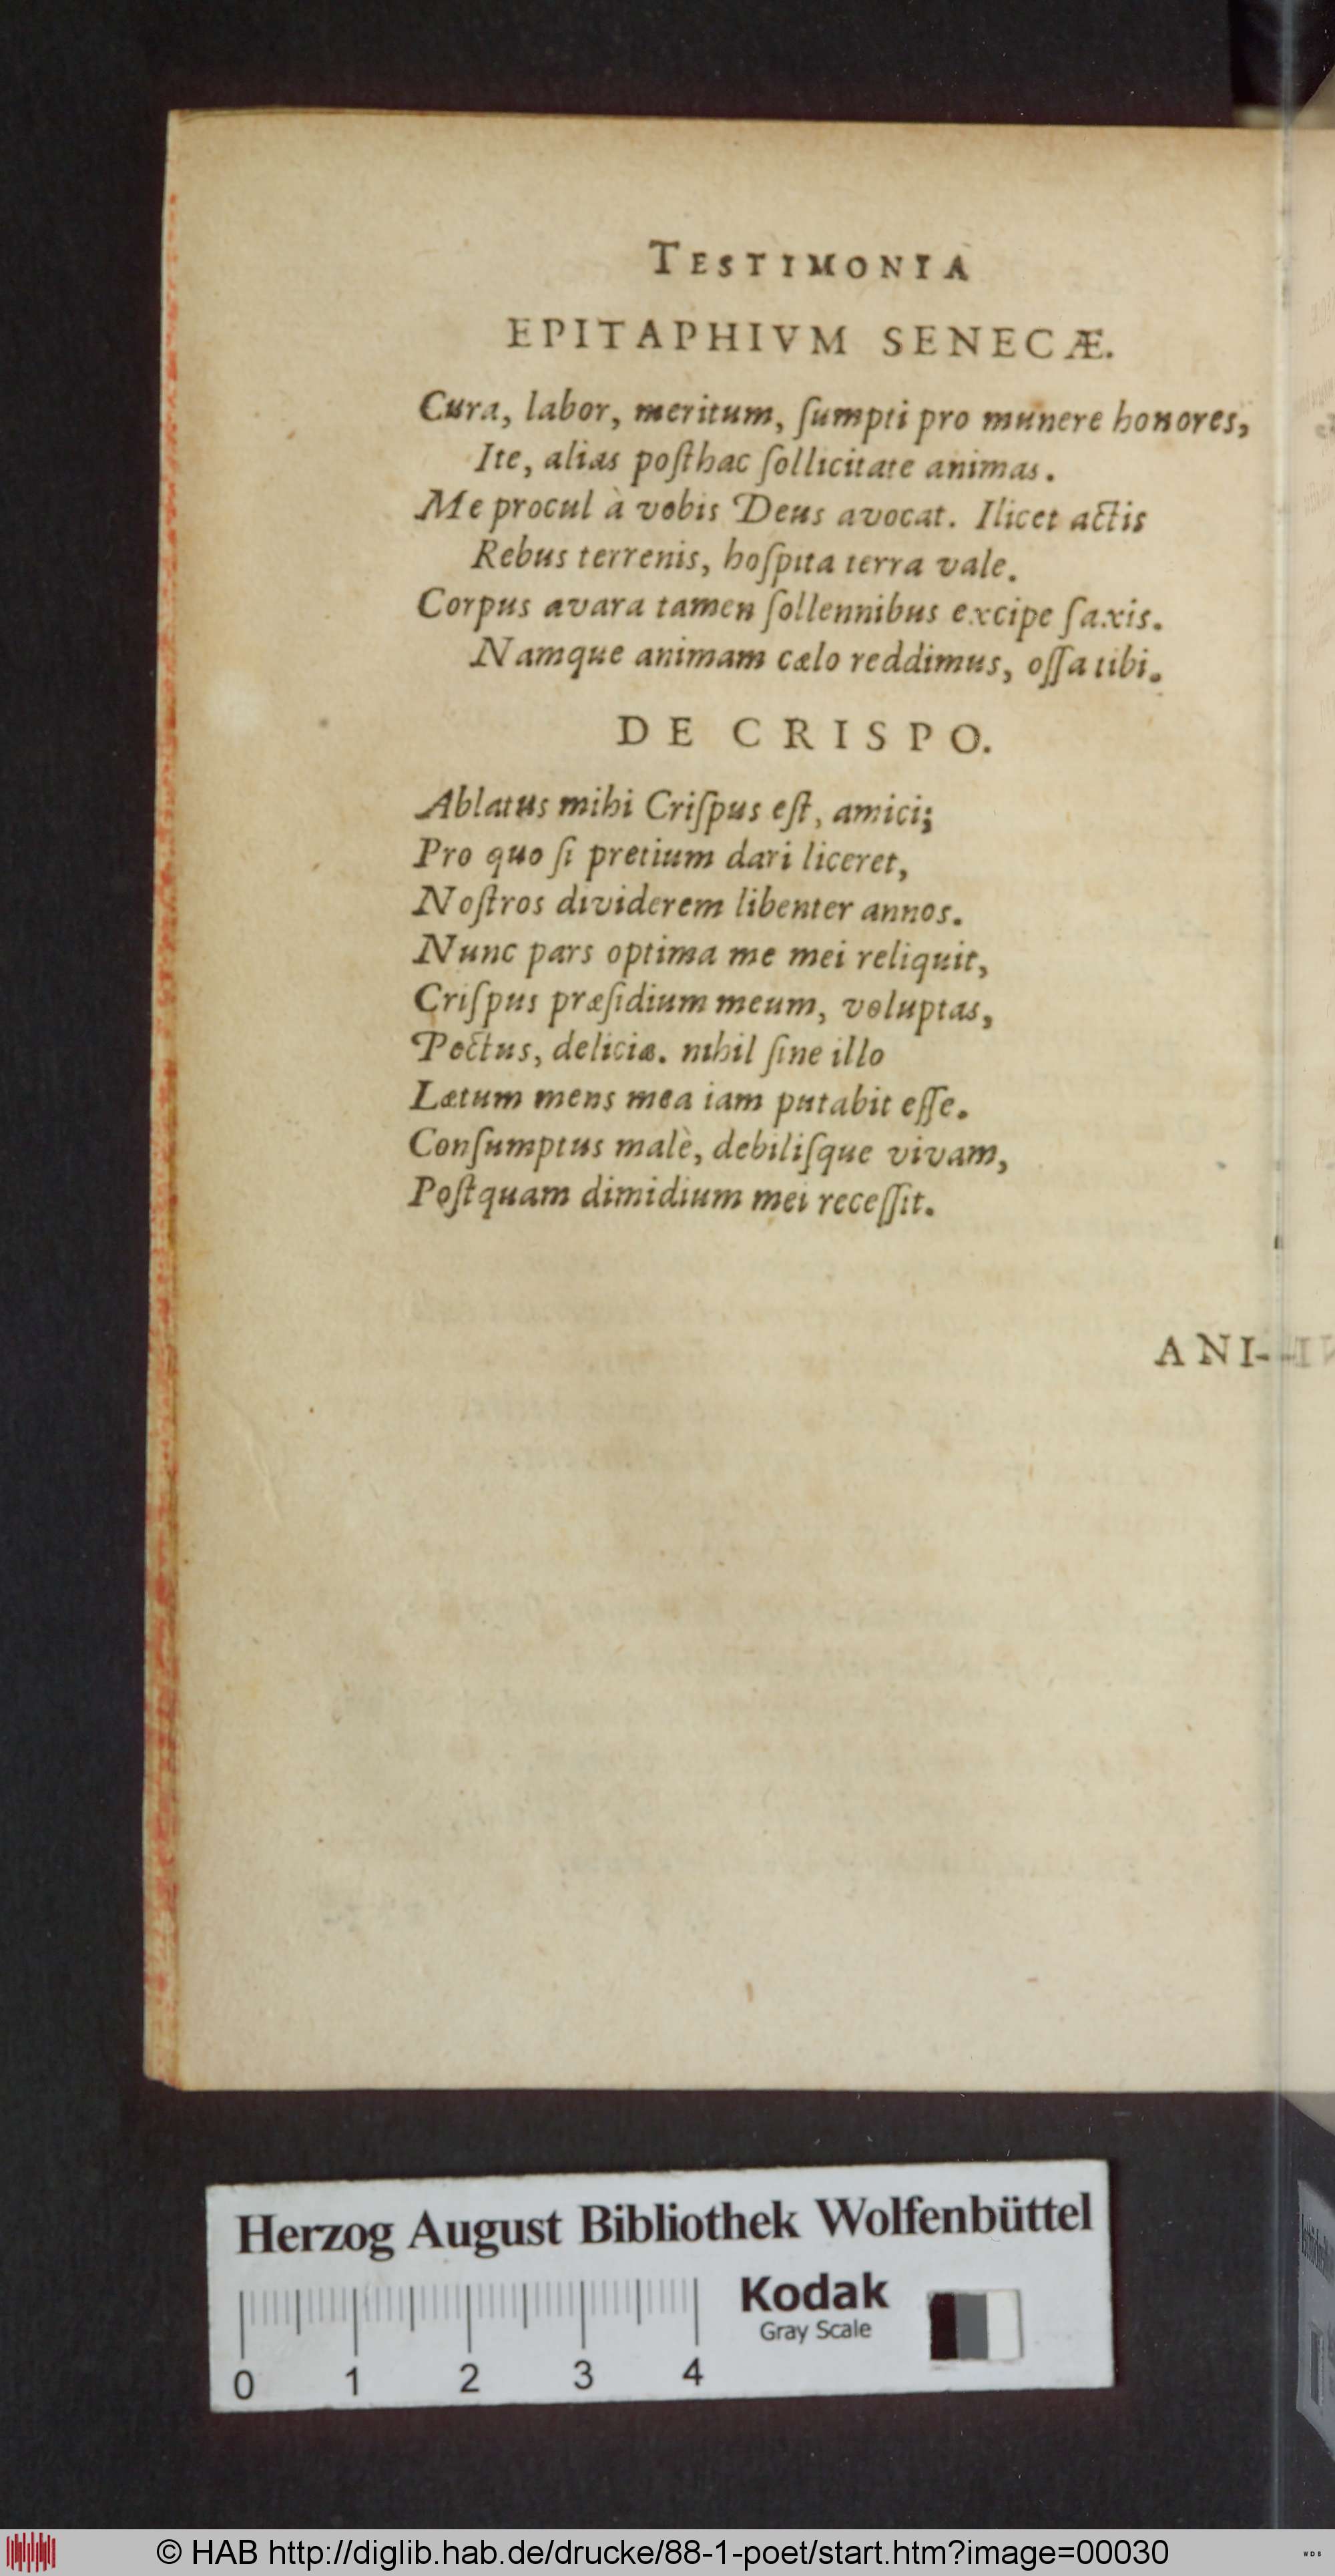 TESTIMONIA
EPITAPHIVM SENECÆ.
Cura, labor, meritum, ſumpti pro munere honores,
Ite, alias poſthac ſollicitate animas.
Me procul à vobis Deus avocat. Ilicet actis
Rebus terrenis, hoſpita terra vale.
Corpus avara tamen ſollennibus excipe ſaxis.
Namque animam cælo reddimus, oſſa tibi.
DE CRISPO.
Ablatus mihi Criſpus eſt, amici;
Pro quo ſi pretium dari liceret,
Noſtros dividerem libenter annos.
Nunc pars optima me mei reliquit,
Criſpus præſidium meum, voluptas,
Pectus, deliciæ. nihil ſine illo
Lætum mens mea iam putabit eſſe.
Conſumptus malè, debiliſque vivam,
Poſtquam dimidium mei receſſit.
ANI-
Herzog August Bibliothek Wolfenbüttel
Kodak
Gray Scale
0 1 2 3 4
© HAB http://diglib.hab.de/drucke/88-1-poet/start.htm?image=00030